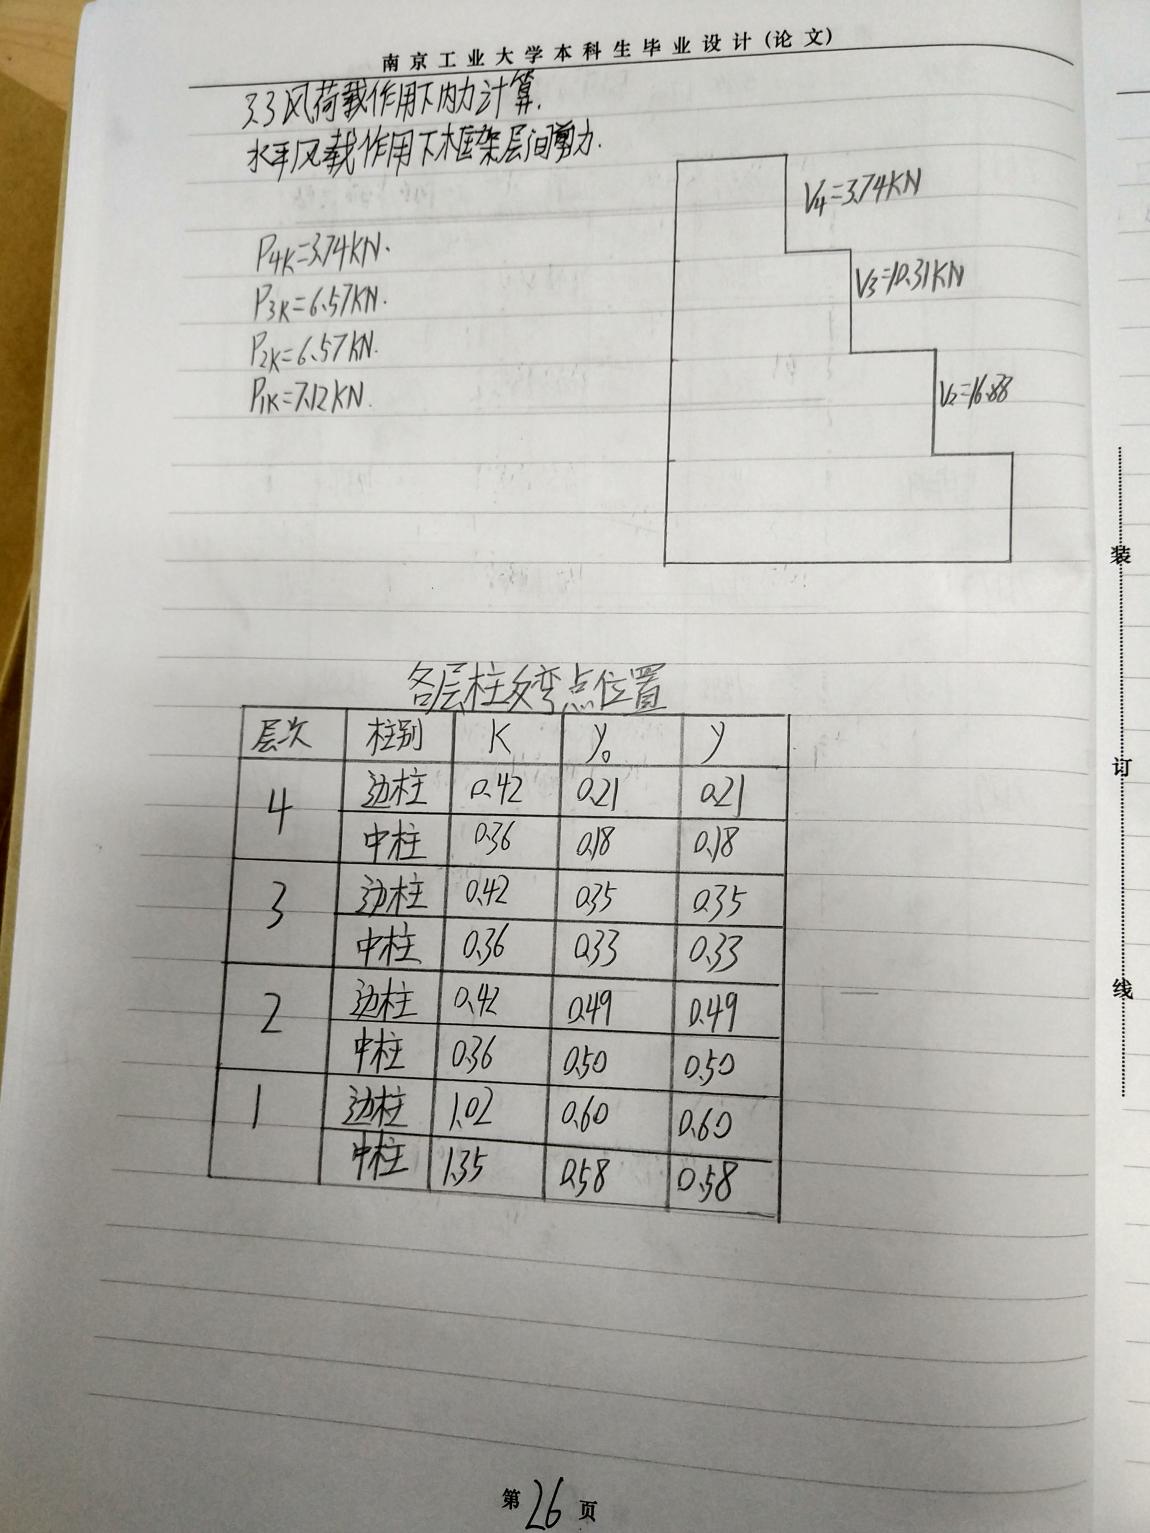 南京工业大学本科生毕业设计(论文)
3.3风荷载作用下内力计算.
水平风载作用下框架层间剪力.
V4=3.74KN
P4K=3.74KN.
V3=10.31KN
P3K=6.57KN.
P2K=6.57KN.
V2=16.88
P1K=7.12KN.
各层柱反弯点位置
层次 柱别 K y0 y
4 边柱 0.42 0.21 0.21
中柱 0.36 0.18 0.18
3 边柱 0.42 0.35 0.35
中柱 0.36 0.33 0.33
2 边柱 0.42 0.49 0.49
中柱 0.36 0.50 0.50
1 边柱 1.02 0.60 0.60
中柱 1.35 0.58 0.58
装
订
线
第26页